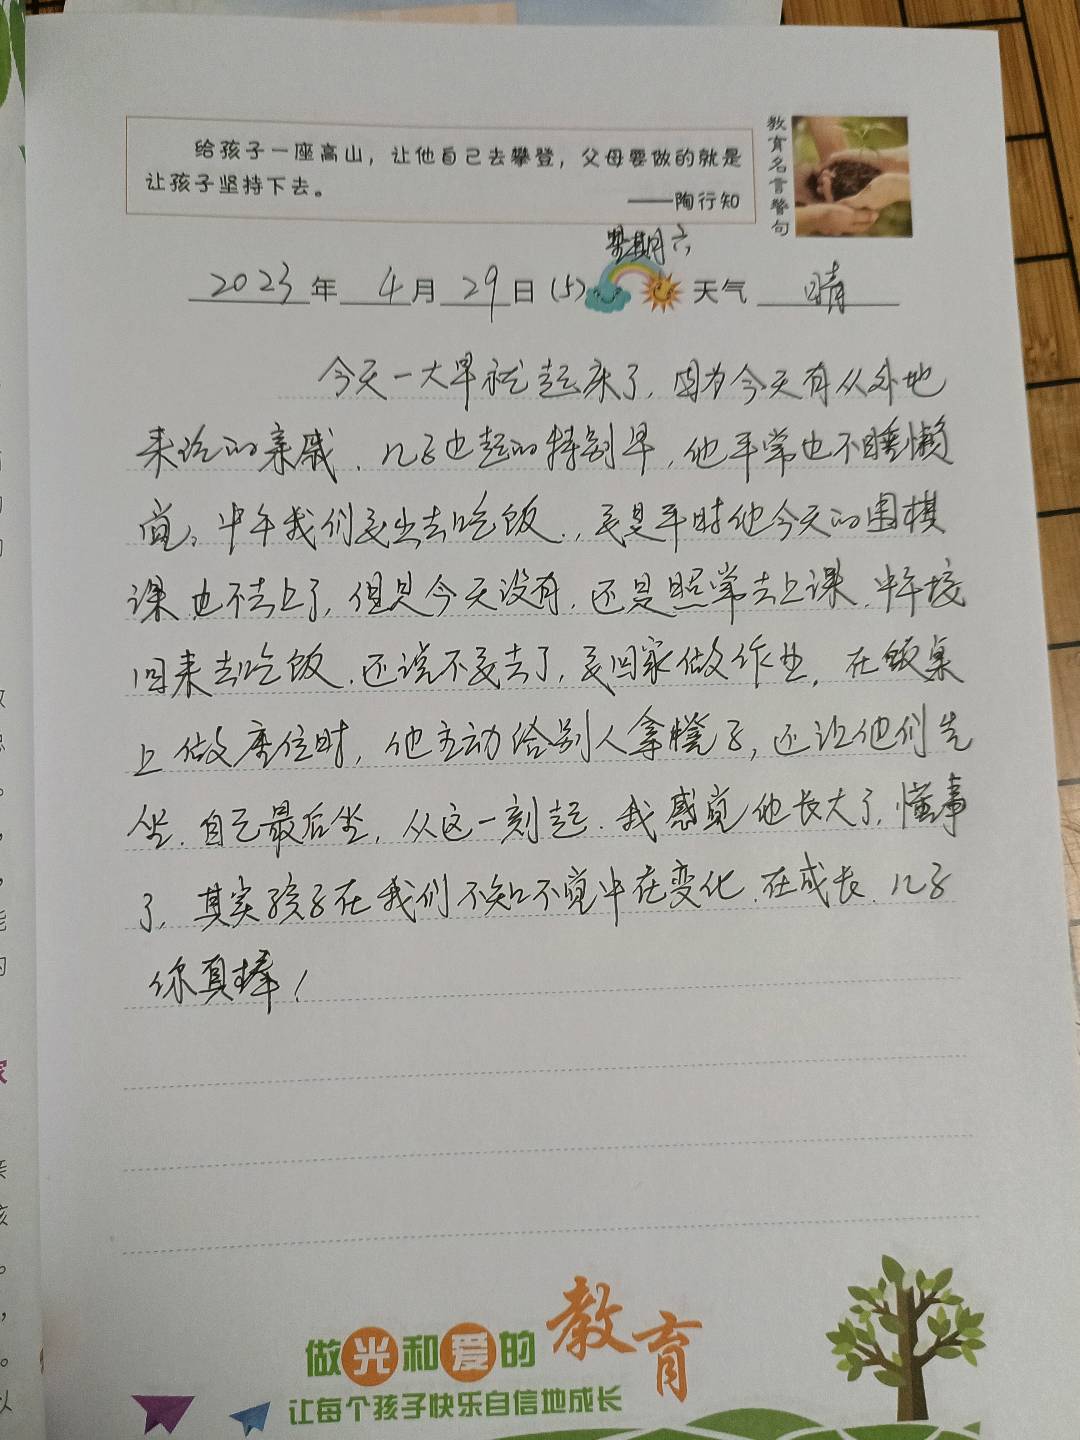 给孩子一座高山，让他自己去攀登，父母要做的就是
让孩子坚持下去。
——陶行知
教育名言警句
星期六
2023年4月29日(5) 天气 晴
今天一大早就起床了，因为今天有从外地
来的亲戚，儿子也起的特别早，他平常也不睡懒
觉。中午我们要出去吃饭，要是平时他今天的围棋
课也不去上了，但是今天没有，还是照常去上课，中午接
回来去吃饭，还说不要去了，要回家做作业，在饭桌
上做座位时，他主动给别人拿凳子，还让他们先
坐，自己最后坐，从这一刻起，我感觉他长大了，懂事
了，其实孩子在我们不知不觉中在变化，在成长，儿子
你真棒！
做光和爱的教育
让每个孩子快乐自信地成长